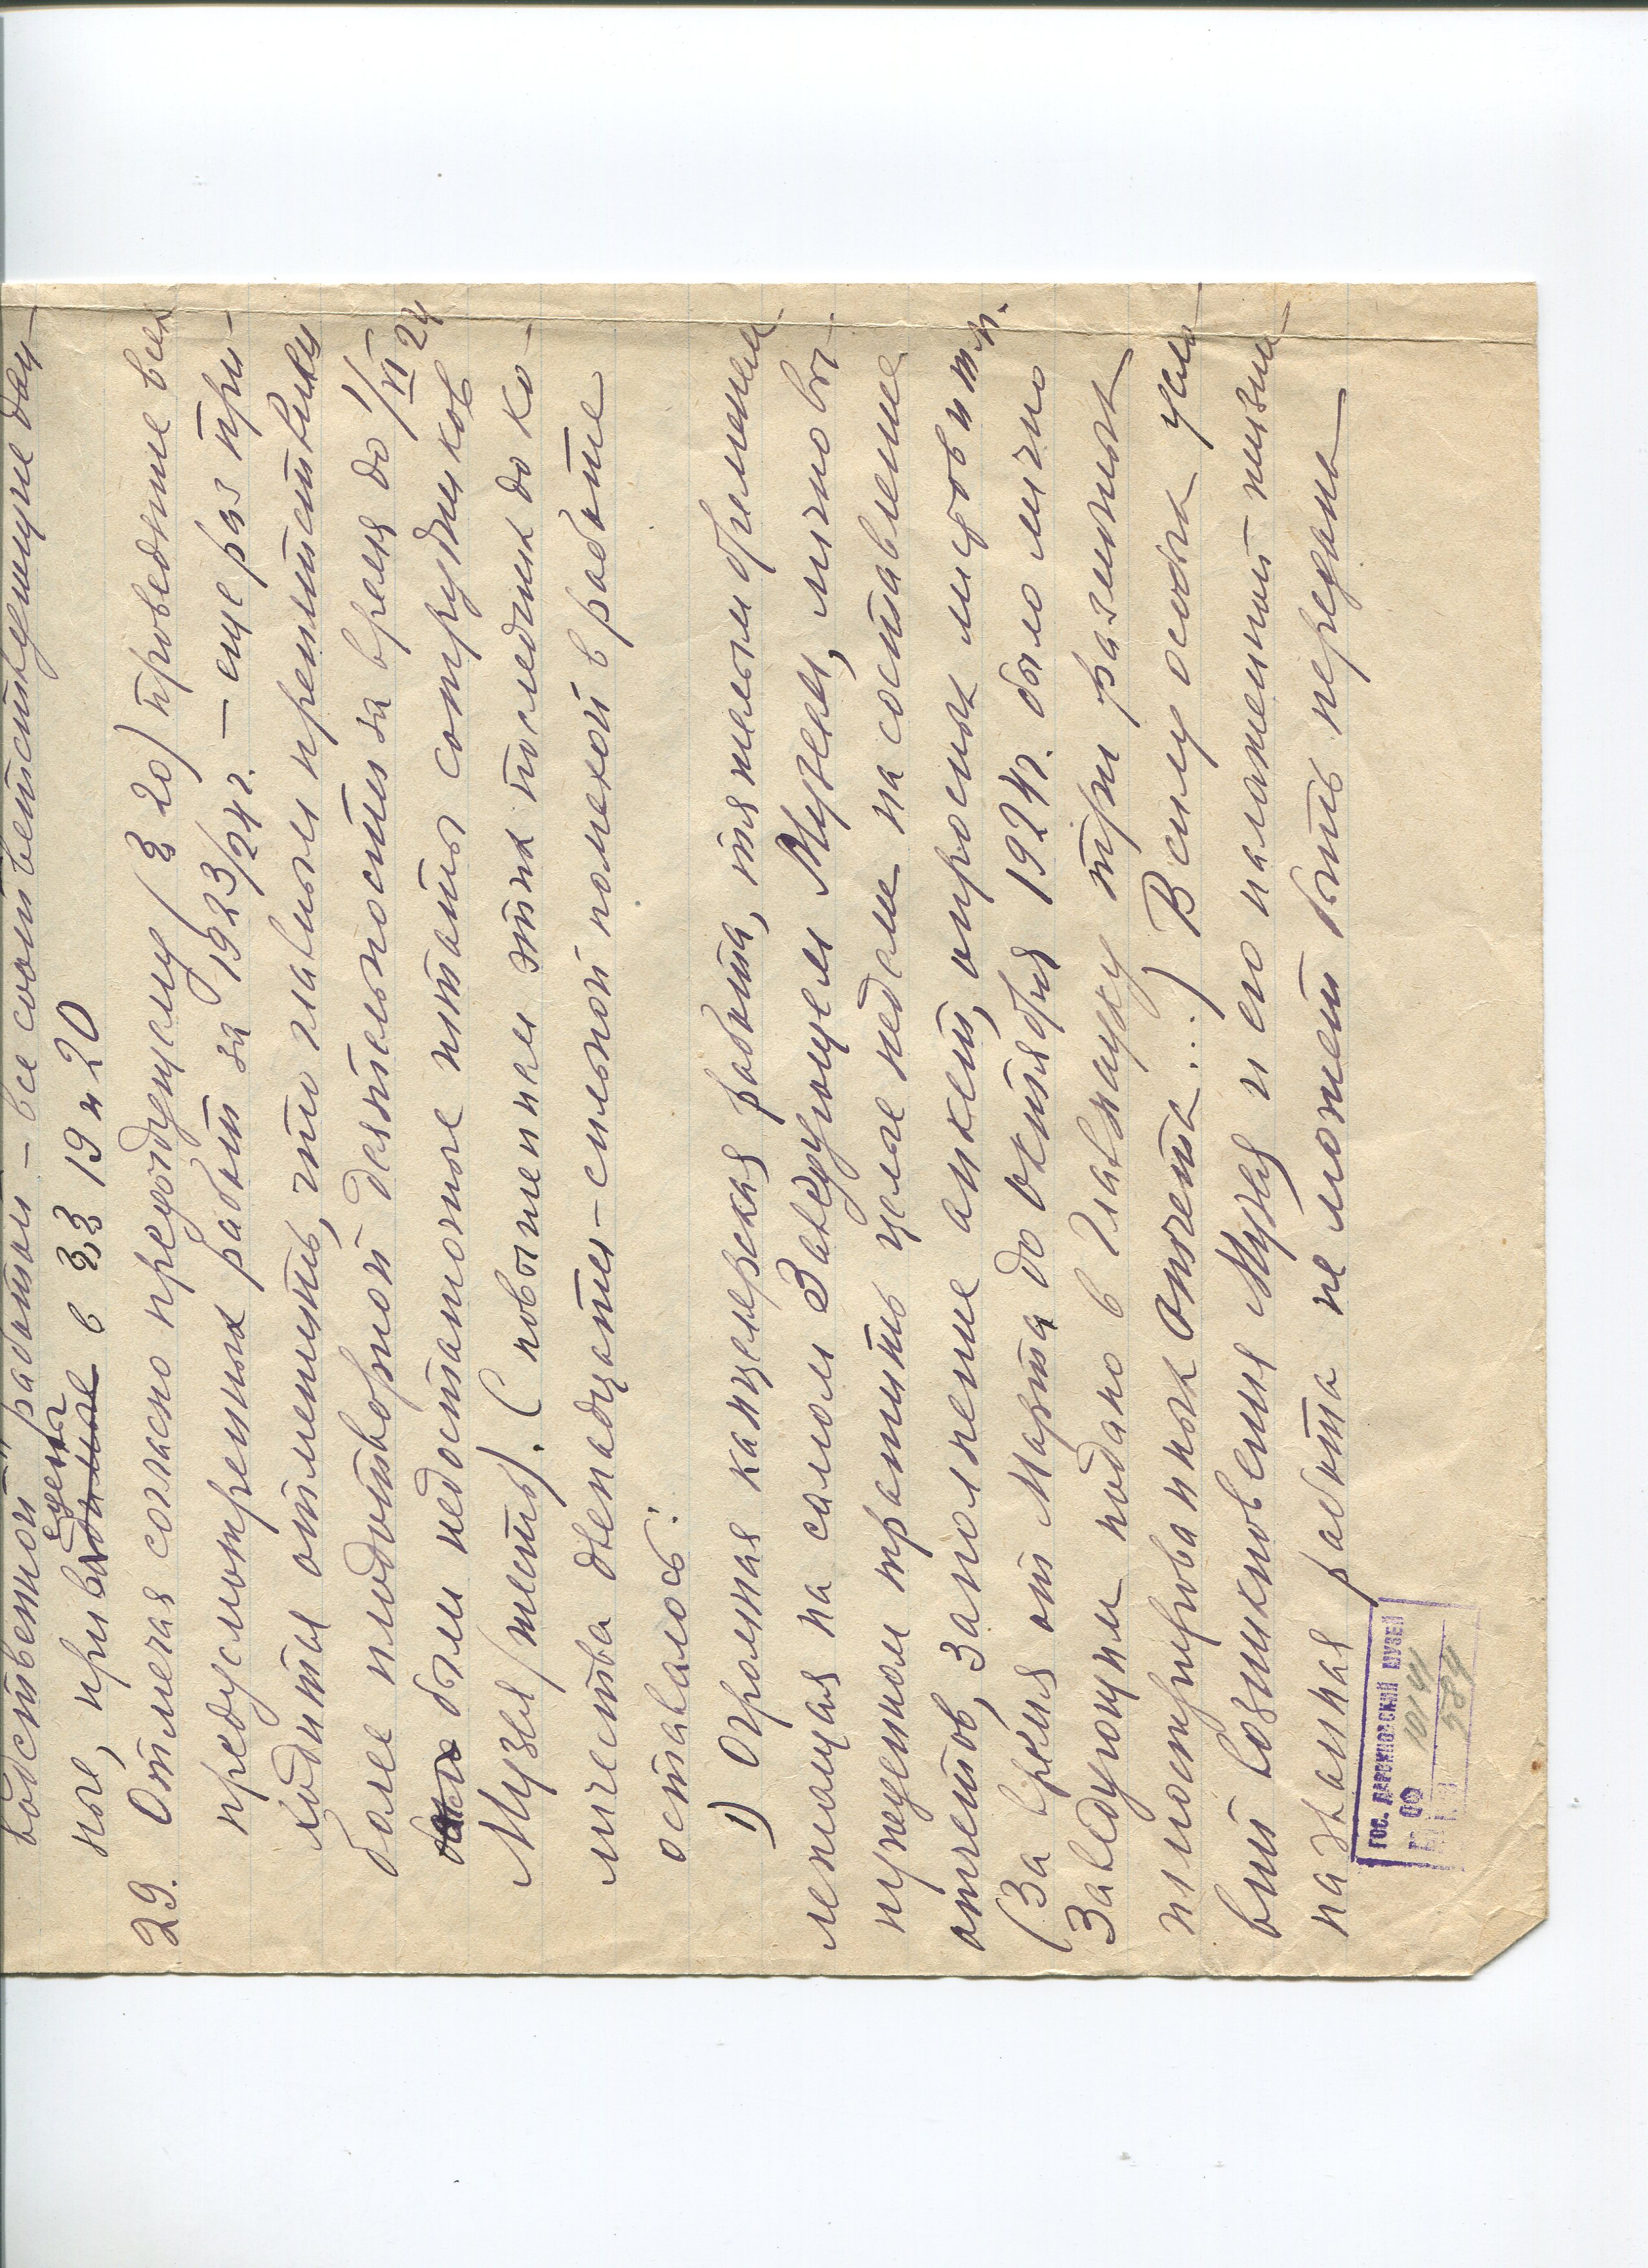 водственной работой – все соответствующие дан-
ные, приведены в §§ 19 и 20
29. Отмечая согласно предыдущему (§ 20) проведение всех
предусмотренных работ за 1923/24 г. – еще раз при-
ходится отметить, что главным препятствием
более плодотворной деятельности за время до 1/VI 24
были недостаточные штаты сотрудников
Музея (шесть). С повышением этих последних до ко-
личества двенадцати – сильной помехой в работе
оставалось:
1) Огромная канцелярская работа, тяжелым бременем
лежащая на самом Заведующем Музеем, лично вы-
нужденном тратить целые недели на составление
отчетов, заполнение анкет, опросных листов и т.п.
(За время от Марта до октября 1924 г. было лично
Заведующим подано в Главнауку три различных
иллюстрированных отчета...) В силу особых усло-
вий возникновения Музея и его налаженной жизни
названная работа не может быть передана
ГОС. ДАРВИНОВСКИЙ МУЗЕЙ
ОФ 10141
584